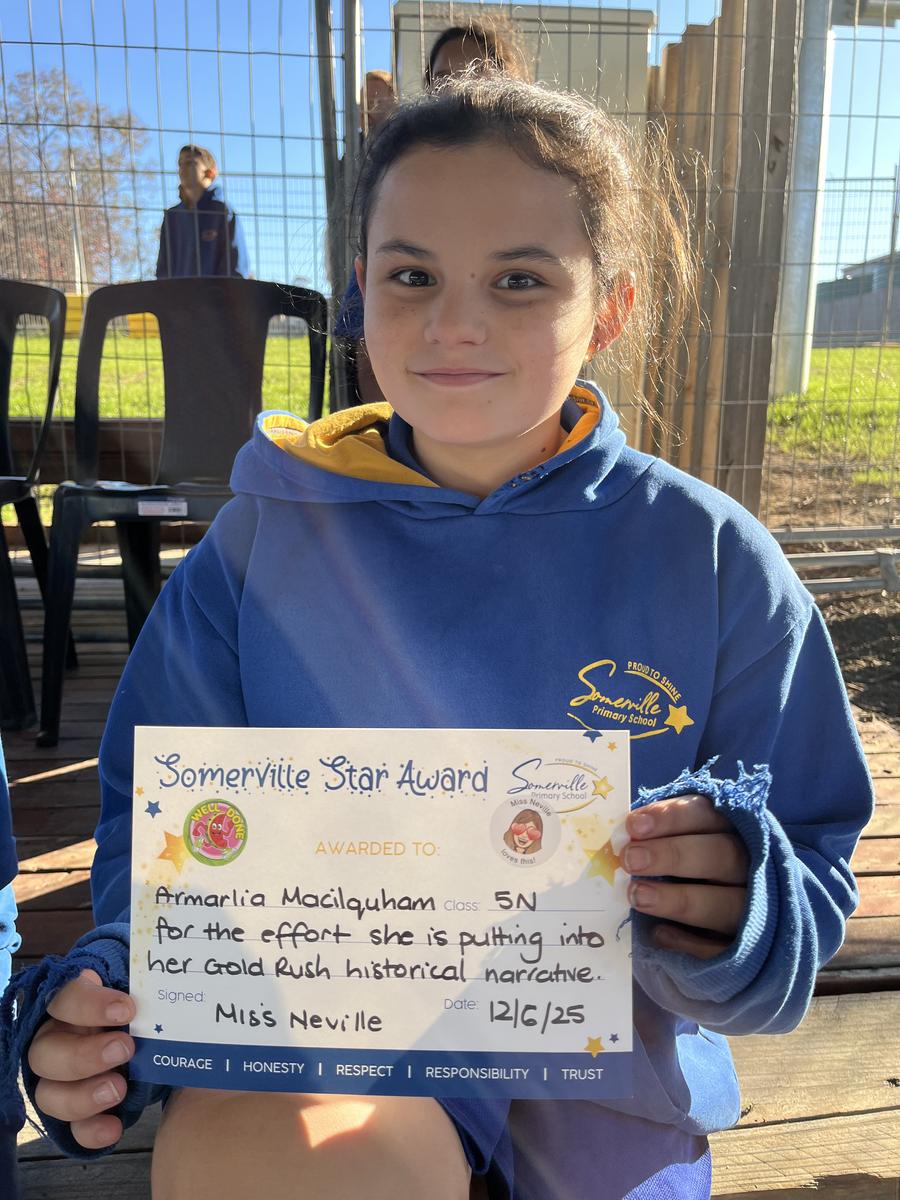 PROUD TO SHINE
Somerville
Primary School
Somerville Star Award
PROUD TO SHINE
Somerville
Primary School
WELL DONE
Miss Neville
loves this!
AWARDED TO:
Armarlia Macilquham Class: 5N
for the effort she is putting into
her Gold Rush historical narrative.
Signed: Miss Neville Date: 12/6/25
COURAGE | HONESTY | RESPECT | RESPONSIBILITY | TRUST